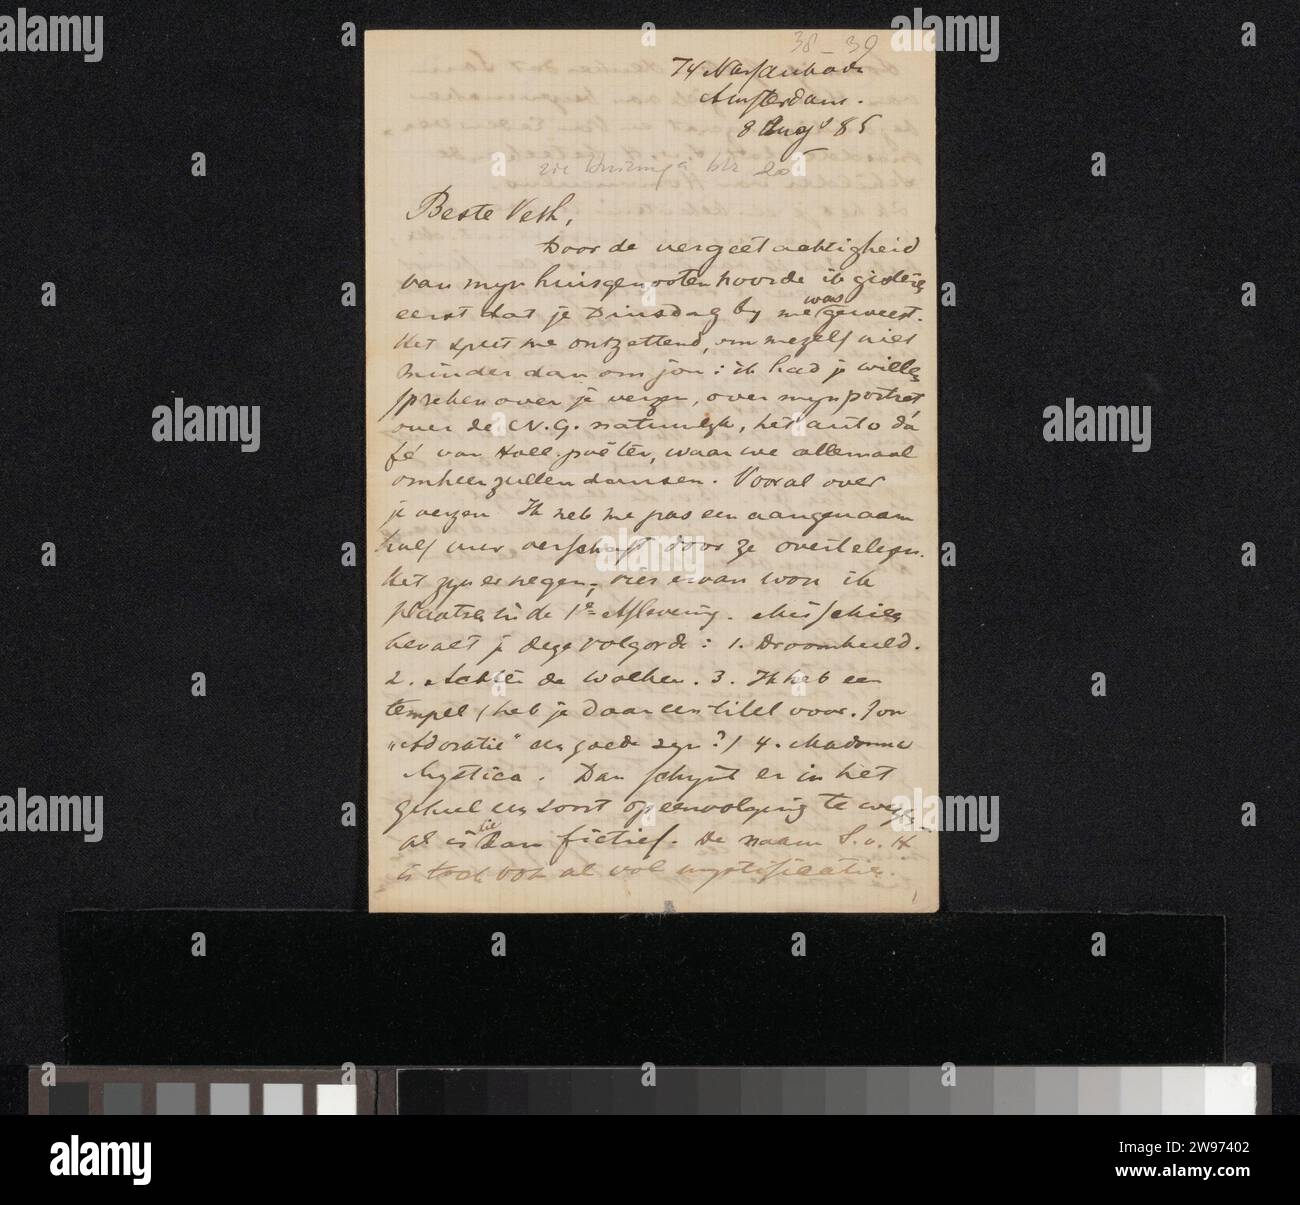 38-39
74 Nassaukade
Amsterdam.
8 Aug '85
zie Huizinga blz 20
Beste Veth,
Door de vergeetachtigheid
van mijn huisgenooten hoorde ik gisteren
eerst dat je Dinsdag by me was geweest.
Het spijt me ontzettend, om mezelf niet
minder dan om jou: ik had je willen
spreken over je verzen, over mijn portret,
over de N.G. natuurlijk, het auto da
fé van Holl. poëten, waar we allemaal
omheen zullen dansen. Vooral over
je verzen Ik heb me pas een aangenaam
half uur verschaft door ze over te lezen.
Het zijn er negen; vier ervan wou ik
plaatsen in de 1e Aflevering. Misschien
bevalt je deze volgorde: 1. Droombeeld.
2. Achter de wolken. 3. Ik heb een
tempel (heb je daar een titel voor. Zou
"Adoratie" een goede zijn?) 4. Madonna
Mystica. Dan schijnt er in het
geheel een soort opeenvolging te wezen
al is die dan fictief. De naam S.v.H.
is toch ook al vol mystificatie.
1
alamy
Image ID: 2W97402
www.alamy.com